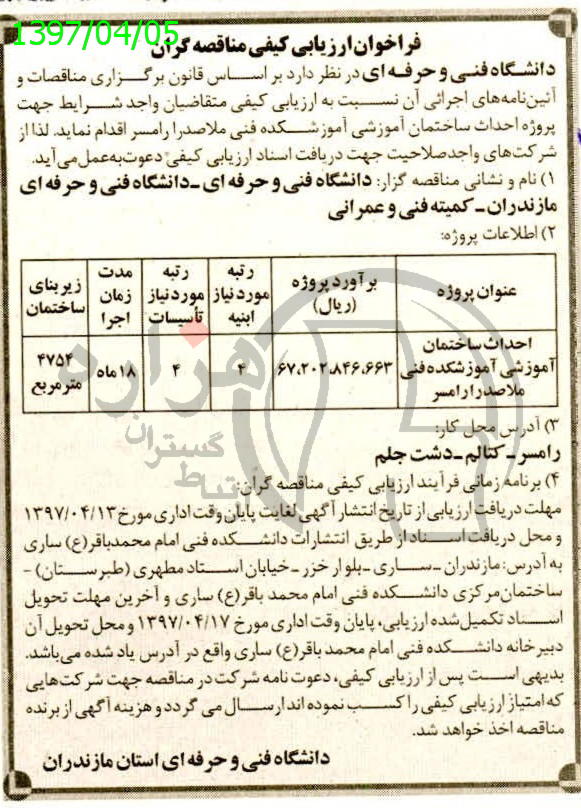 1397/04/05
فراخوان ارزیابی کیفی مناقصه گران
دانشگاه فنی و حرفه ای در نظر دارد بر اساس قانون برگزاری مناقصات و
آئین‌نامه‌های اجرائی آن نسبت به ارزیابی کیفی متقاضیان واجد شرایط جهت
پروژه احداث ساختمان آموزشی آموزشکده فنی ملاصدرا رامسر اقدام نماید. لذا از
شرکت‌های واجد صلاحیت جهت دریافت اسناد ارزیابی کیفی دعوت به عمل می‌آید.
۱) نام و نشانی مناقصه گزار: دانشگاه فنی و حرفه ای ـ دانشگاه فنی و حرفه ای
مازندران ـ کمیته فنی و عمرانی
۲) اطلاعات پروژه:
عنوان پروژه | برآورد پروژه (ریال) | رتبه مورد نیاز ابنیه | رتبه مورد نیاز تأسیسات | مدت زمان اجرا | زیربنای ساختمان
احداث ساختمان آموزشی آموزشکده فنی ملاصدرا رامسر | ۶۷،۲۰۲،۸۴۶،۶۶۳ | ۴ | ۴ | ۱۸ ماه | ۴۷۵۴ مترمربع
۳) آدرس محل کار:
رامسر ـ کتالم ـ دشت جلم
۴) برنامه زمانی فرآیند ارزیابی کیفی مناقصه گران:
مهلت دریافت ارزیابی از تاریخ انتشار آگهی لغایت پایان وقت اداری مورخ ۱۳۹۷/۰۴/۱۳
و محل دریافت اسناد از طریق انتشارات دانشکده فنی امام محمدباقر(ع) ساری
به آدرس: مازندران ـ ساری ـ بلوار خزر ـ خیابان استاد مطهری (طبرستان) -
ساختمان مرکزی دانشکده فنی امام محمد باقر(ع) ساری و آخرین مهلت تحویل
اسناد تکمیل شده ارزیابی، پایان وقت اداری مورخ ۱۳۹۷/۰۴/۱۷ و محل تحویل آن
دبیرخانه دانشکده فنی امام محمد باقر(ع) ساری واقع در آدرس یاد شده می‌باشد.
بدیهی است پس از ارزیابی کیفی، دعوت نامه شرکت در مناقصه جهت شرکت‌هایی
که امتیاز ارزیابی کیفی را کسب نموده اند ارسال می گردد و هزینه آگهی از برنده
مناقصه اخذ خواهد شد.
دانشگاه فنی و حرفه ای استان مازندران
هزاره
گستران
ارتباط